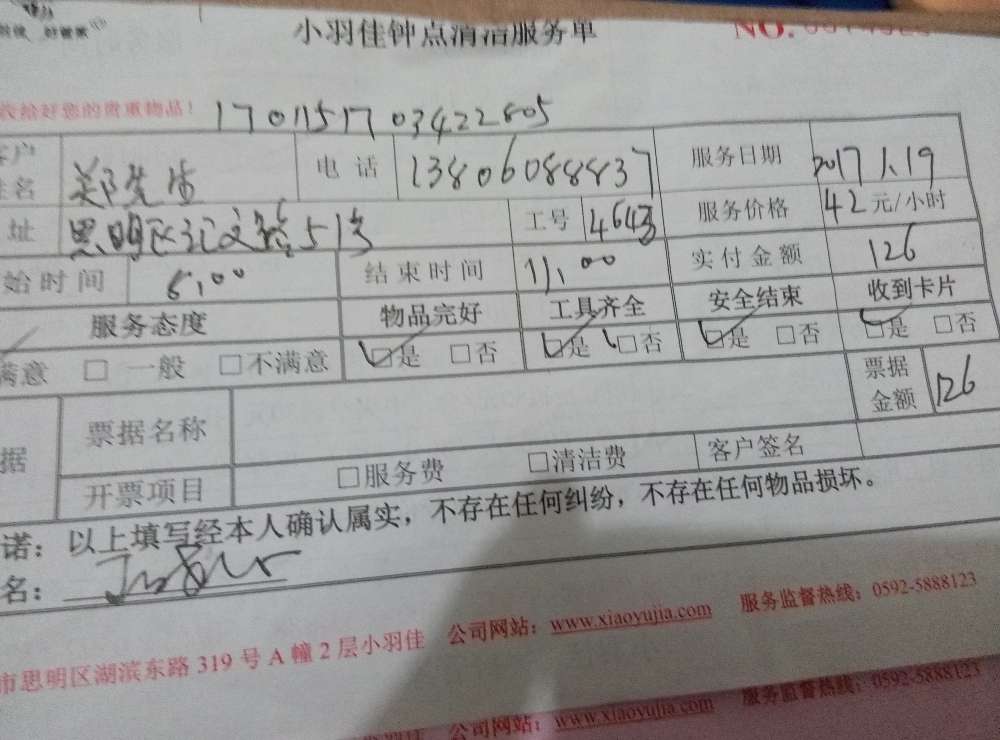 小羽佳钟点清洁服务单 NO.
收拾好您的贵重物品! 1701151703422805
客户姓名 先生 电话 13806088837 服务日期 2017.1.19
址 思明区汇文路51号 工号 4643 服务价格 42元/小时
始时间 8:00 结束时间 11:00 实付金额 126
服务态度 物品完好 工具齐全 安全结束 收到卡片
满意 □ 一般 □不满意 □是 □否 □是 □否 □是 □否 □是 □否
据 票据名称 票据金额 126
开票项目 □服务费 □清洁费 客户签名
诺: 以上填写经本人确认属实,不存在任何纠纷,不存在任何物品损坏。
名:
市思明区湖滨东路 319 号 A 幢 2 层小羽佳 公司网站: www.xiaoyujia.com 服务监督热线: 0592-5888123
公司网站: www.xiaoyujia.com 服务监督热线: 0592-5888123